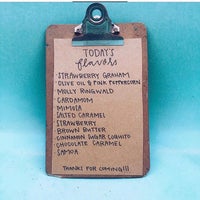 TODAY'S
flavors
STRAWBERRY GRAHAM
OLIVE OIL & PINK PEPPERCORN
MOLLY RINGWALD
CARDAMOM
MIMOSA
SALTED CARAMEL
STRAWBERRY
BROWN BUTTER
CINNAMON SUGAR COQUITO
CHOCOLATE CARAMEL
SAMOA
THANKS FOR COMING!!!